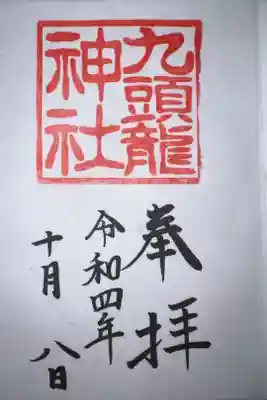 九頭龍
神社
奉拝
令和四年
十月八日